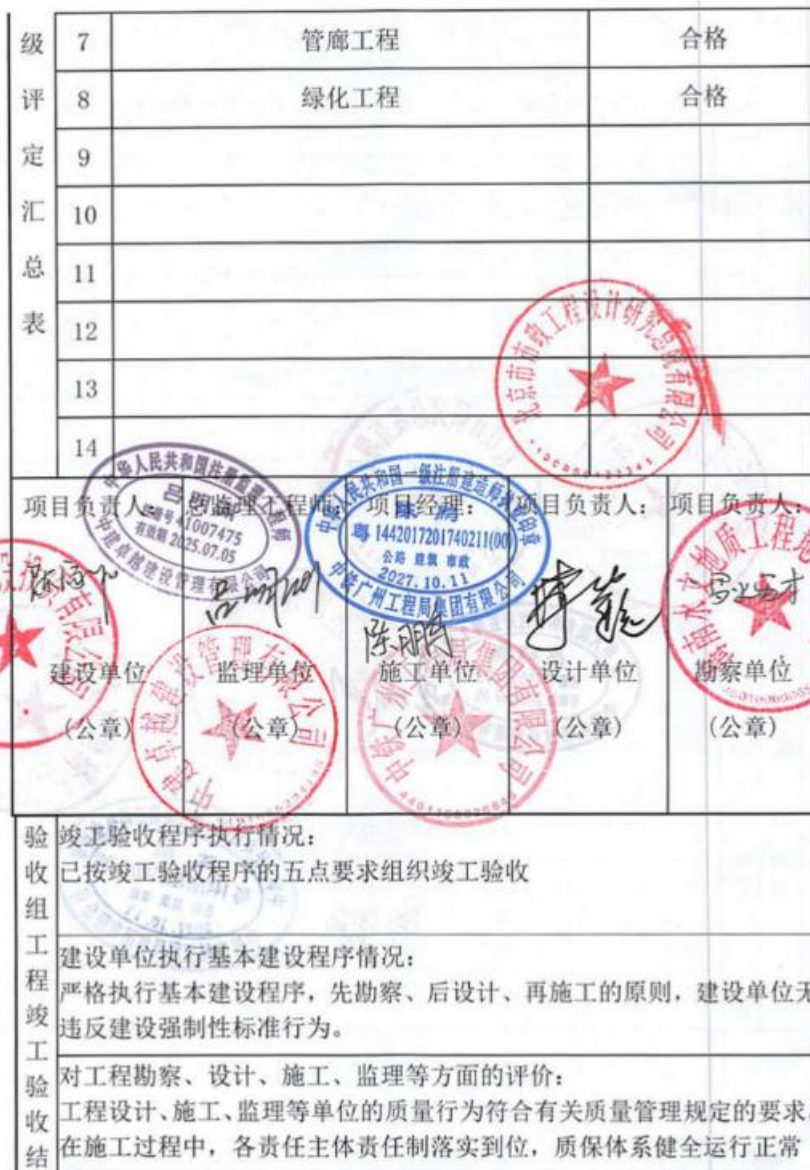 级 7 管廊工程 合格
评 8 绿化工程 合格
定 9
汇 10
总 11
表 12
13
14
北京市市政工程设计研究总院有限公司
中华人民共和国注册监理工程师
41007475
有效期 2025.07.05
中建卓越建设管理有限公司
中华人民共和国一级注册建造师执业印章
陈鹏
粤 1442017201740211(00)
公路 建筑 市政
2027.10.11
中铁广州工程局集团有限公司
项目负责人: 总监理工程师: 项目经理: 项目负责人: 项目负责人:
陈鹏
建设单位 监理单位 施工单位 设计单位 勘察单位
(公章) (公章) (公章) (公章) (公章)
中建卓越建设管理有限公司
中铁广州工程局集团有限公司
验收组工程竣工验收结
竣工验收程序执行情况:
已按竣工验收程序的五点要求组织竣工验收
建设单位执行基本建设程序情况:
严格执行基本建设程序，先勘察、后设计、再施工的原则，建设单位无
违反建设强制性标准行为。
对工程勘察、设计、施工、监理等方面的评价:
工程设计、施工、监理等单位的质量行为符合有关质量管理规定的要求
在施工过程中，各责任主体责任制落实到位，质保体系健全运行正常